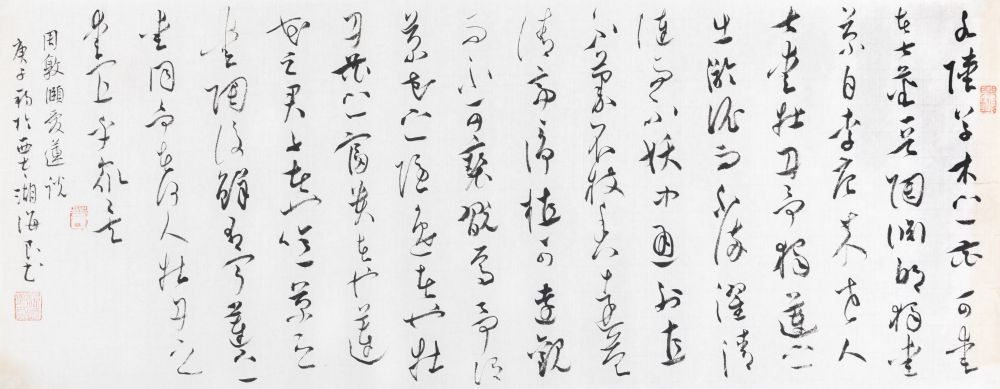 水陸草木之花可愛
者甚蕃晉陶淵明獨愛
菊自李唐來世人
甚愛牡丹予獨蓮之
出淤泥而不染濯清
漣而不妖中通外直
不蔓不枝香遠益
清亭淨植可遠觀
而不可褻翫焉予謂
菊花之隱逸者也牡
丹花之富貴者也蓮
花之君子者也噫菊之
愛陶後鮮有聞蓮之
愛同予者何人牡丹之
愛宜乎眾矣
周敦頤愛蓮說
庚子 於 湖海